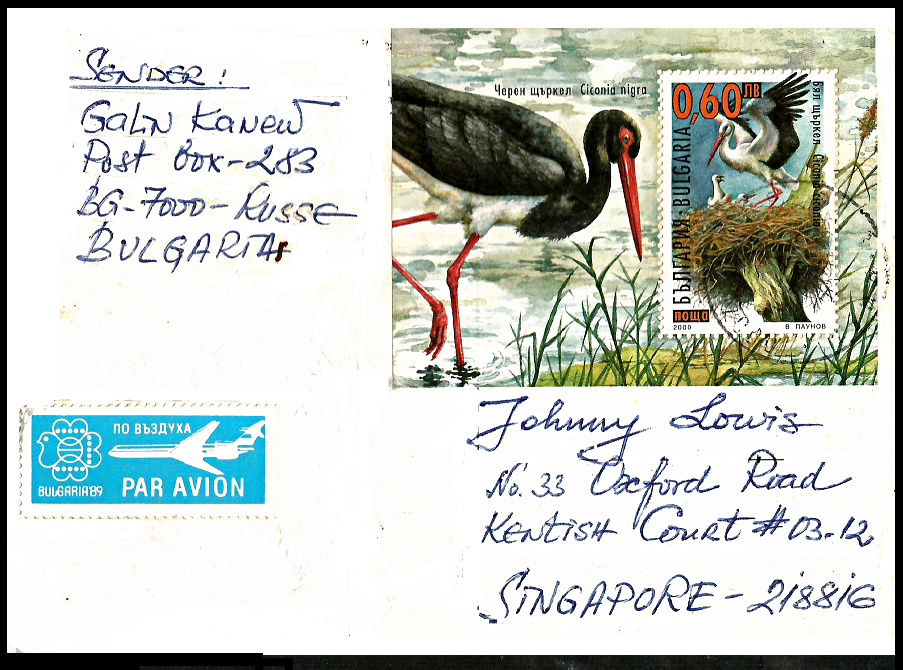 SENDER:
Galin Kanew
Post Box-283
BG-7000-Russe
BULGARIA
Черен щъркел Ciconia nigra
0,60 ЛВ
БЪЛГАРИЯ·BULGARIA
Бял щъркел Ciconia ciconia
поща
2000
В. ПАУНОВ
ПО ВЪЗДУХА
BULGARIA'89
PAR AVION
Johnny Lowis
No. 33 Oxford Road
Kentish Court #03-12
SINGAPORE - 218816